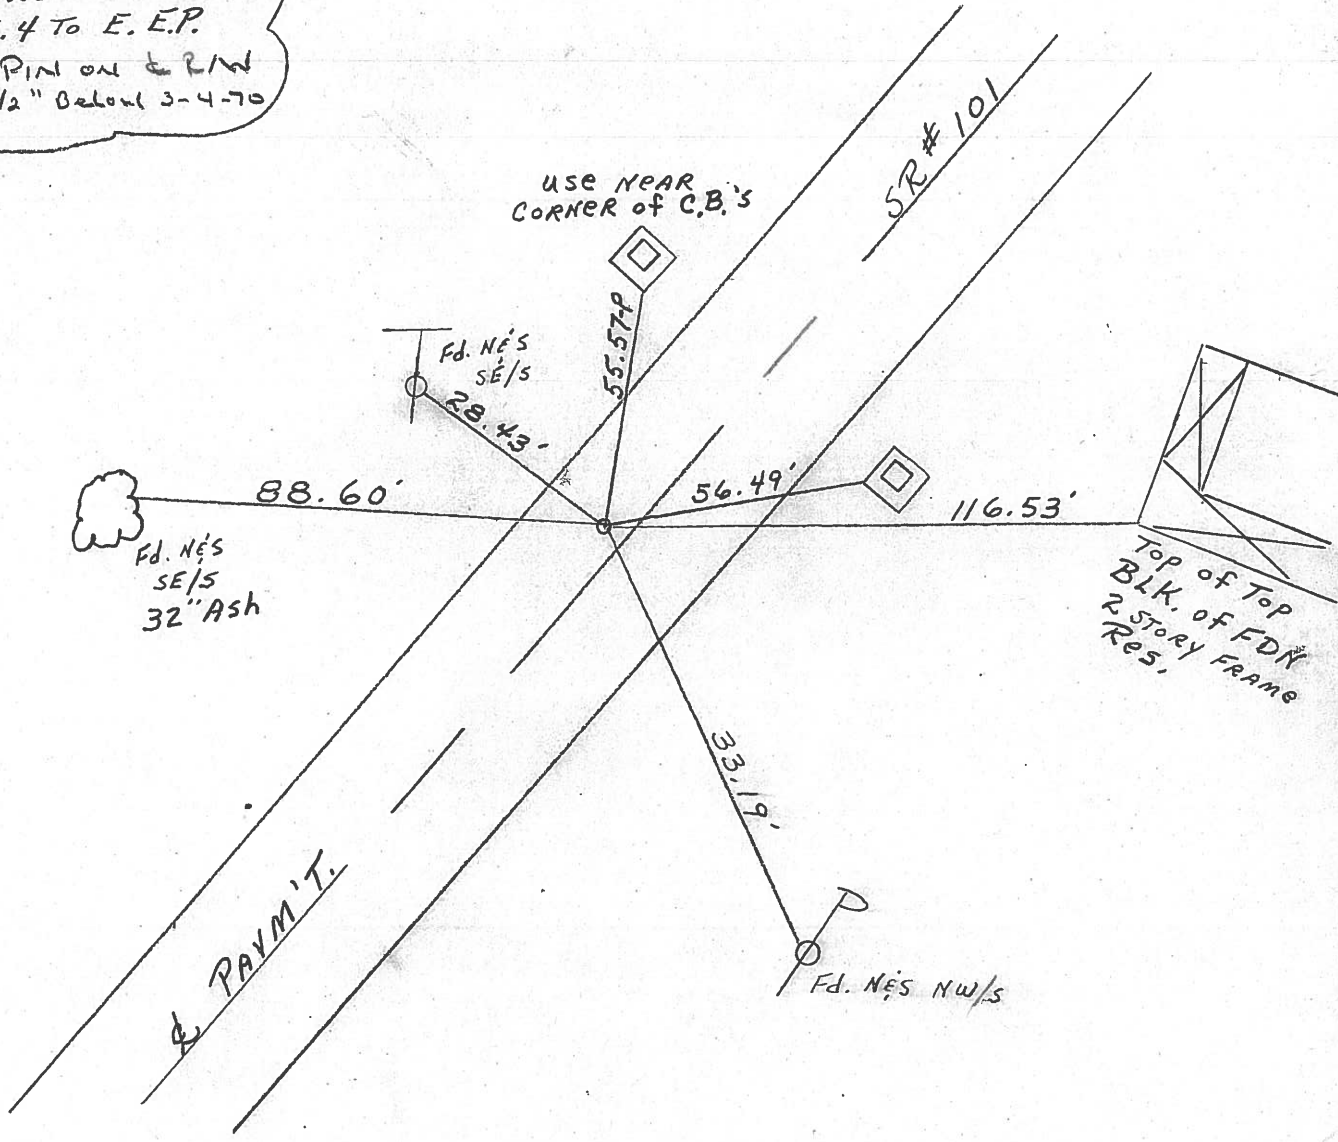 .4 To E. E.P.
PIN ON ℄ R/W
/2" Below 3-4-70
SR # 101
use NeAR
CORNER of C.B.'s
55.57
Fd. N&S
SE/S
28.43'
88.60'
56.49'
116.53'
Fd. N&S
SE/S
32" Ash
Top of Top
BLK. of FDN
2 STORY FRAMe
Res.
33.19'
℄ PAVM'T.
Fd. N&S NW/S